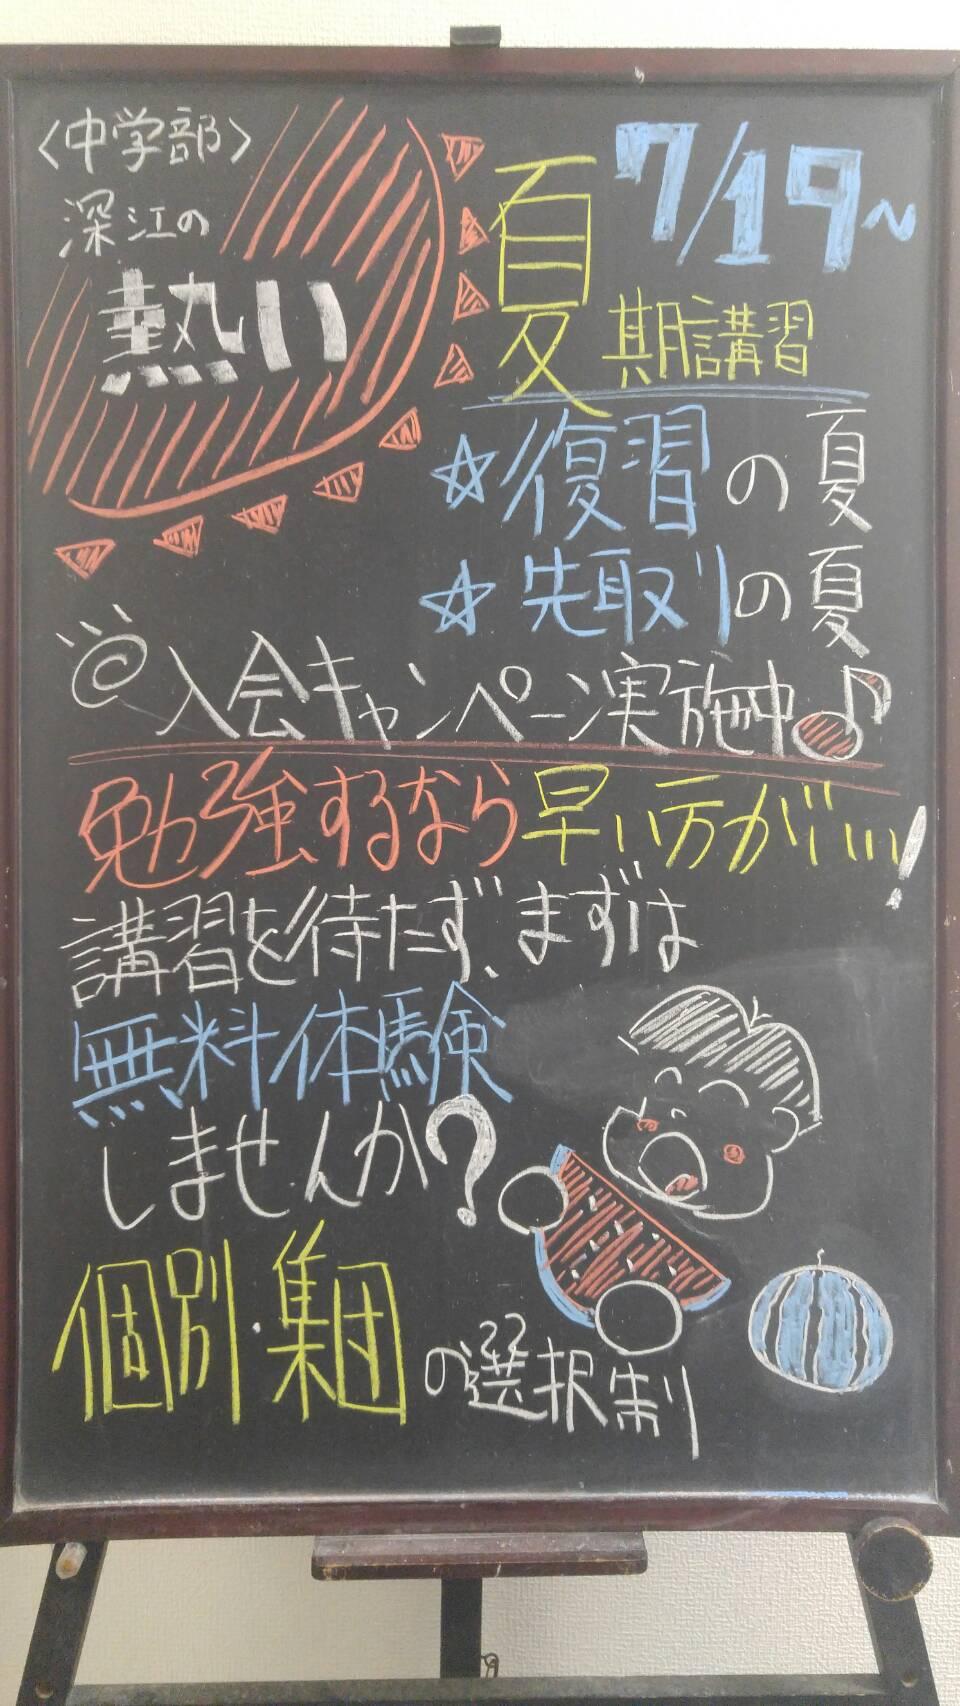 〈中学部〉
深江の
熱い
7/19~
夏期講習
☆復習の夏
☆先取りの夏
@入会キャンペーン実施中♪
勉強するなら早い方がいい!
講習を待たず、まずは
無料体験
しませんか?
個別・集団の選択制